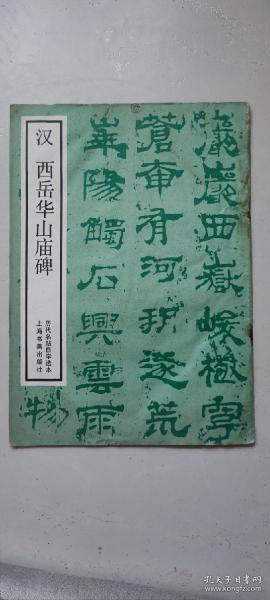 汉 西岳华山庙碑
历代名帖自学选本
上海书画出版社
巖巖西嶽峻極穹
蒼奄有河朔遂荒
華陽觸石興雲雨
物
孔夫子旧书网